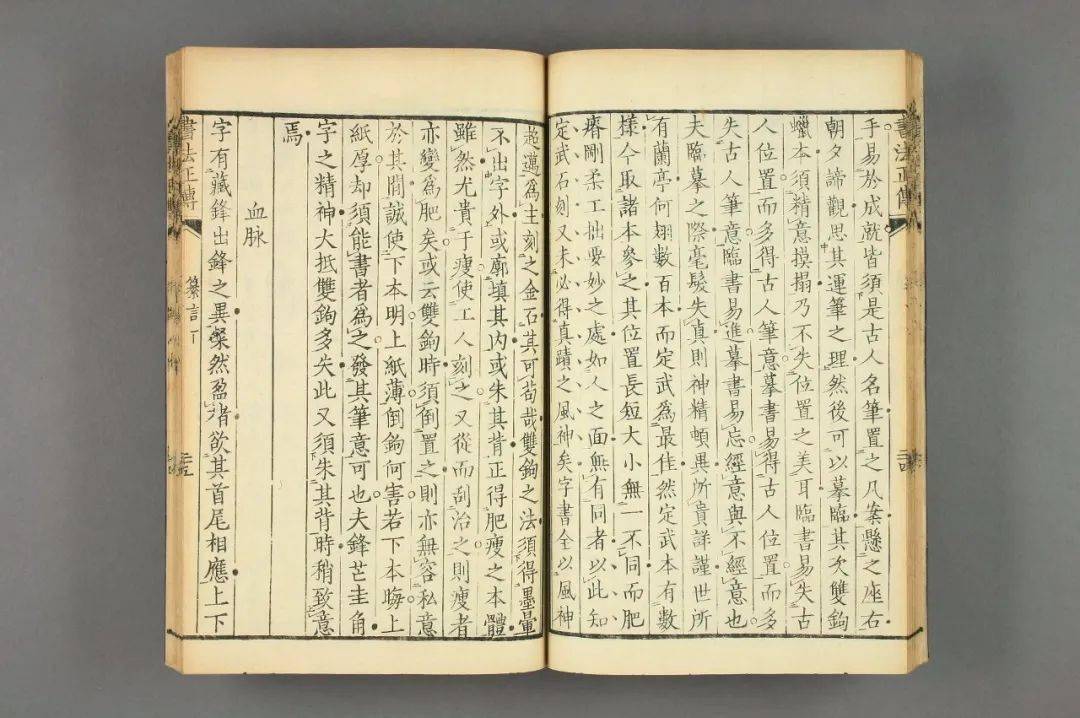 書法正傳
手易於成就皆須是古人名筆置之几案懸之座右
朝夕諦觀思其運筆之理然後可以摹臨其次雙鉤
蠟本須精意摸搨乃不失位置之美耳臨書易失古
人位置而多得古人筆意摹書易得古人位置而多
失古人筆意臨書易進摹書易忘經意與不經意也
夫臨摹之際毫髮失真則神精頓異所貴詳謹世所
有蘭亭何翅數百本而定武爲最佳然定武本有數
樣今取諸本參之其位置長短大小無一不同而肥
瘠剛柔工拙要妙之處如人之面無有同者以此知
定武石刻又未必得真蹟之風神矣字書全以風神
超邁爲主刻之金石其可苟哉雙鉤之法須得墨暈
不出字外或廓填其內或朱其背正得肥瘦之本體
雖然尤貴于瘦使工人刻之又從而刮治之則瘦者
亦變爲肥矣或云雙鉤時須倒置之則亦無容私意
於其間誠使下本明上紙薄倒鉤何害若下本晦上
紙厚却須能書者爲之發其筆意可也夫鋒芒圭角
字之精神大抵雙鉤多失此又須朱其背時稍致意
焉
血脉
字有藏鋒出鋒之異粲然盈楮欲其首尾相應上下
書法正傳
纂言下
三五